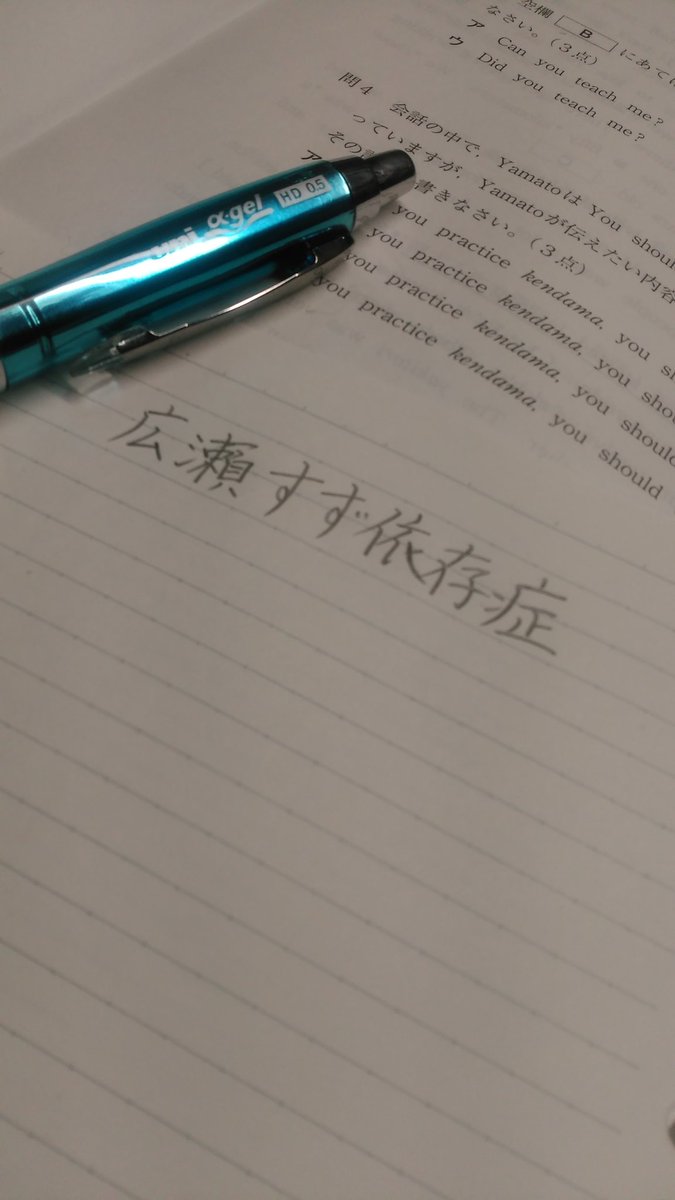 空欄 B にあては
なさい。(3点)
ア Can you teach me?
ウ Did you teach me?
問4 会話の中で, Yamatoは You shoul
っていますが, Yamatoが伝えたい内容
その 書きなさい。(3点)
ア you practice kendama, you sh
you practice kendama, you shou
you practice kendama, you should
you practice kendama, you should
uni α-gel HD 0.5
広瀬すず依存症